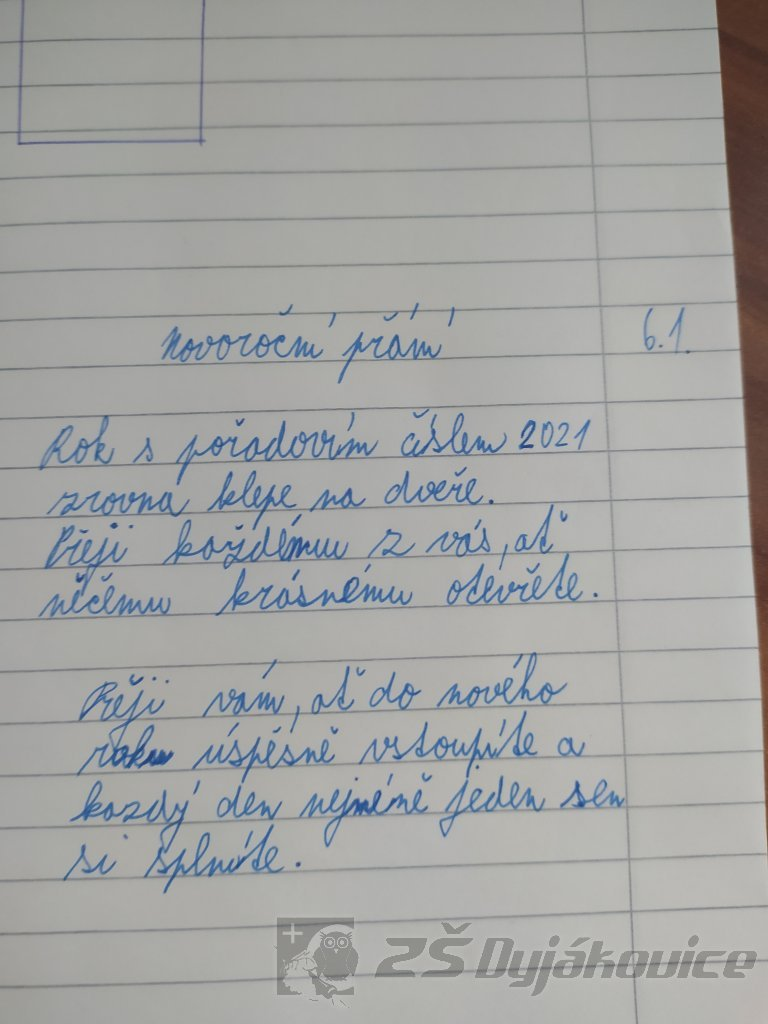 Novoroční přání 6.1.
Rok s pořadovím číslem 2021
zrovna klepe na dveře.
Přeji každému z vás, ať
něčému krásnému otevřete.
Přěji vám, ať do nového
roku úspěšně vstoupíte a
kazdý den nejméně jeden sen
si splníte.
ZŠ Dyjákovice